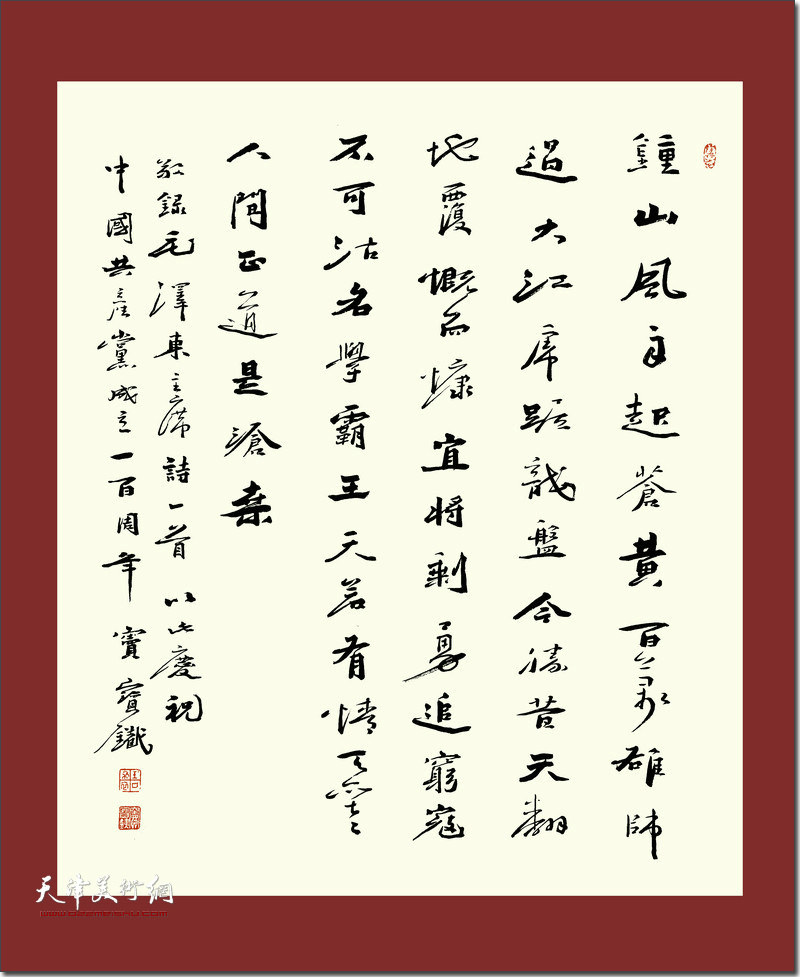 鍾山風雨起蒼黃百萬雄師
過大江虎踞龍盤今勝昔天翻
地覆慨而慷宜将剩勇追窮寇
不可沽名學霸王天若有情天亦老
人間正道是滄桑
敬錄毛澤東主席詩一首以此慶祝
中國共產黨成立一百周年 竇寶鐵
天津美術網